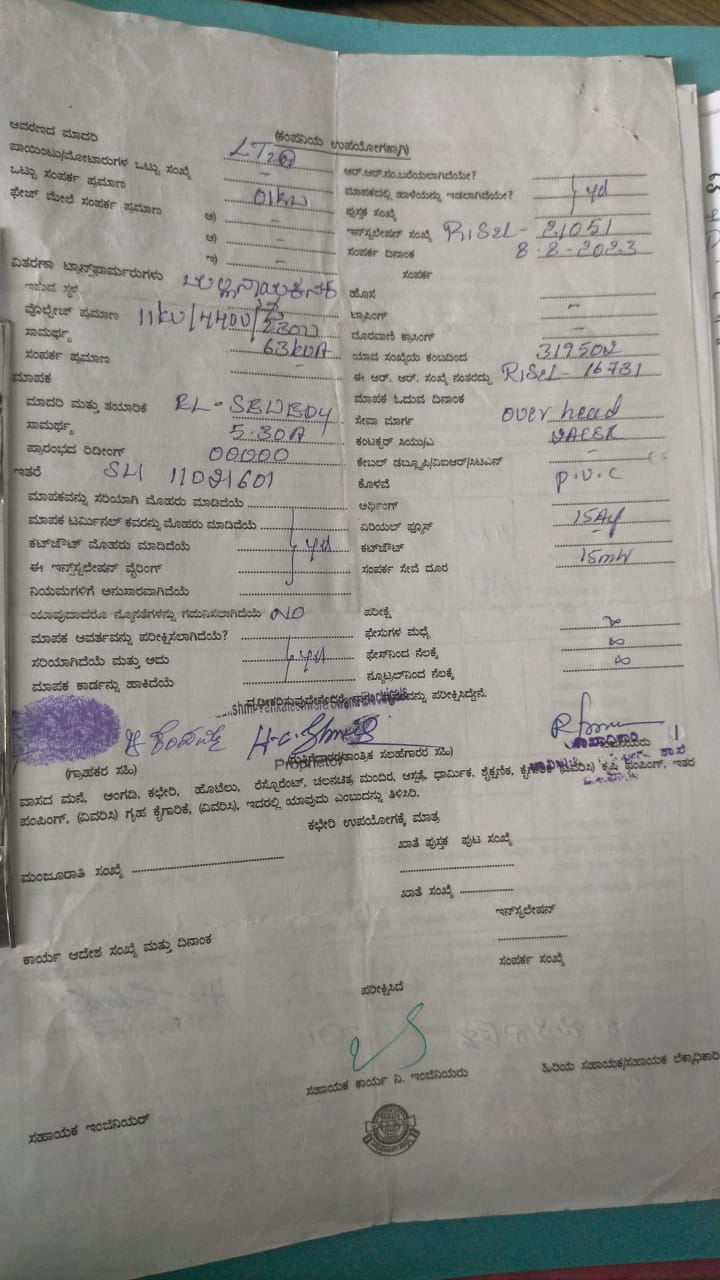 (ಕಂಪನಿಯ ಉಪಯೋಗಕ್ಕಾಗಿ)
ಆವರಣದ ಮಾದರಿ LT2
ಪಾಯಿಂಟು/ಮೋಟಾರುಗಳ ಒಟ್ಟು ಸಂಖ್ಯೆ –
ಒಟ್ಟು ಸಂಪರ್ಕ ಪ್ರಮಾಣ 01KW
ಫೇಜ್ ಮೇಲೆ ಸಂಪರ್ಕ ಪ್ರಮಾಣ ಅ) –
ಆ) –
ಇ) –
ವಿತರಣಾ ಟ್ರಾನ್ಸ್‌ಫಾರ್ಮರುಗಳು
ಇರುವ ಸ್ಥಳ
ವೊಲ್ಟೇಜ್ ಪ್ರಮಾಣ 11KV/440V/230V
ಸಾಮರ್ಥ್ಯ 63KVA
ಸಂಪರ್ಕ ಪ್ರಮಾಣ –
ಮಾಪಕ
ಮಾದರಿ ಮತ್ತು ತಯಾರಿಕೆ
ಸಾಮರ್ಥ್ಯ 5-30A
ಪ್ರಾರಂಭದ ರಿಡೀಂಗ್ 00000
ಇತರೆ 11021601
ಮಾಪಕವನ್ನು ಸರಿಯಾಗಿ ಮೊಹರು ಮಾಡಿದೆಯೆ
ಮಾಪಕ ಟರ್ಮಿನಲ್ ಕವರನ್ನು ಮೊಹರು ಮಾಡಿದೆಯೆ
ಕಟ್‌ಔಟ್ ಮೊಹರು ಮಾಡಿದೆಯೆ yes
ಈ ಇನ್‌ಸ್ಟಲೇಷನ್ ವೈರಿಂಗ್
ನಿಯಮಗಳಿಗೆ ಅನುಸಾರವಾಗಿದೆಯೆ
ಯಾವುದಾದರೂ ನ್ಯೂನತೆಗಳನ್ನು ಗಮನಿಸಲಾಗಿದೆಯೆ NO
ಮಾಪಕ ಆವರ್ತವನ್ನು ಪರೀಕ್ಷಿಸಲಾಗಿದೆಯೆ?
ಸರಿಯಾಗಿದೆಯೆ ಮತ್ತು ಅದು yes
ಮಾಪಕ ಕಾರ್ಡನ್ನು ಹಾಕಿದೆಯೆ
ಆರ್.ಆರ್.ನಂ.ಬರೆಯಲಾಗಿದೆಯೇ?
ಮಾಪಕದಲ್ಲಿ ಹಾಳೆಯನ್ನು ಇಡಲಾಗಿದೆಯೇ? yes
ಪುಸ್ತಕ ಸಂಖ್ಯೆ
ಇನ್‌ಸ್ಟಲೇಷನ್ ಸಂಖ್ಯೆ 21051
ಸಂಪರ್ಕ ದಿನಾಂಕ 8-2-2023
ಸಂಪರ್ಕ
ಹೊಸ
ಟ್ಯಾಪಿಂಗ್ –
ದೂರವಾಣಿ ಕ್ರಾಸಿಂಗ್ –
ಯಾವ ಸಂಖ್ಯೆಯ ಕಂಬದಿಂದ
ಈ ಆರ್. ಆರ್. ಸಂಖ್ಯೆ ನಂತರದ್ದು 16731
ಮಾಪಕ ಓದುವ ದಿನಾಂಕ
ಸೇವಾ ಮಾರ್ಗ over head
ಕಂಟಕ್ಟರ್ ಸಿಯು/ಎ
ಕೇಬಲ್ ಡಬ್ಲ್ಯೂಪಿ/ವಿಐಆರ್/ಸಿಟಿಎಸ್ –
ಕೊಳವೆ P.V.C
ಅರ್ಥಿಂಗ್
ಏರಿಯಲ್ ಫ್ಯೂಸ್
ಕಟ್‌ಔಟ್ –
ಸಂಪರ್ಕ ಸೇವೆ ದೂರ
ಪರೀಕ್ಷೆ
ಫೇಸುಗಳ ಮಧ್ಯೆ ∞
ಫೇಸ್‌ನಿಂದ ನೆಲಕ್ಕೆ ∞
ನ್ಯೂಟ್ರಲ್‌ನಿಂದ ನೆಲಕ್ಕೆ ∞
Proprietor
(ಗ್ರಾಹಕರ ಸಹಿ) (ಗುತ್ತಿಗೆದಾರರ/ತಾಂತ್ರಿಕ ಸಲಹೆಗಾರರ ಸಹಿ)
ವಾಸದ ಮನೆ, ಅಂಗಡಿ, ಕಛೇರಿ, ಹೊಟೆಲು, ರೆಸ್ಟೋರೆಂಟ್, ಚಲನಚಿತ್ರ ಮಂದಿರ, ಆಸ್ಪತ್ರೆ, ಧಾರ್ಮಿಕ, ಶೈಕ್ಷಣಿಕ, ಕೈಗಾರಿಕೆ (ವಿವರಿಸಿ) ಕೃಷಿ ಪಂಪಿಂಗ್, ಇತರ
ಪಂಪಿಂಗ್, (ವಿವರಿಸಿ) ಗೃಹ ಕೈಗಾರಿಕೆ, (ವಿವರಿಸಿ), ಇದರಲ್ಲಿ ಯಾವುದು ಎಂಬುದನ್ನು ತಿಳಿಸಿರಿ.
ಕಛೇರಿ ಉಪಯೋಗಕ್ಕೆ ಮಾತ್ರ
ಖಾತೆ ಪುಸ್ತಕ ಪುಟ ಸಂಖ್ಯೆ
ಮಂಜೂರಾತಿ ಸಂಖ್ಯೆ
ಖಾತೆ ಸಂಖ್ಯೆ
ಇನ್‌ಸ್ಟಲೇಷನ್
ಕಾರ್ಯ ಆದೇಶ ಸಂಖ್ಯೆ ಮತ್ತು ದಿನಾಂಕ
ಸಂಪರ್ಕ ಸಂಖ್ಯೆ
ಪರೀಕ್ಷಿಸಿದೆ
ಸಹಾಯಕ ಇಂಜಿನಿಯರ್ ಸಹಾಯಕ ಕಾರ್ಯ ನಿ. ಇಂಜಿನಿಯರು ಹಿರಿಯ ಸಹಾಯಕ/ಸಹಾಯಕ ಲೆಕ್ಕಾಧಿಕಾರಿ